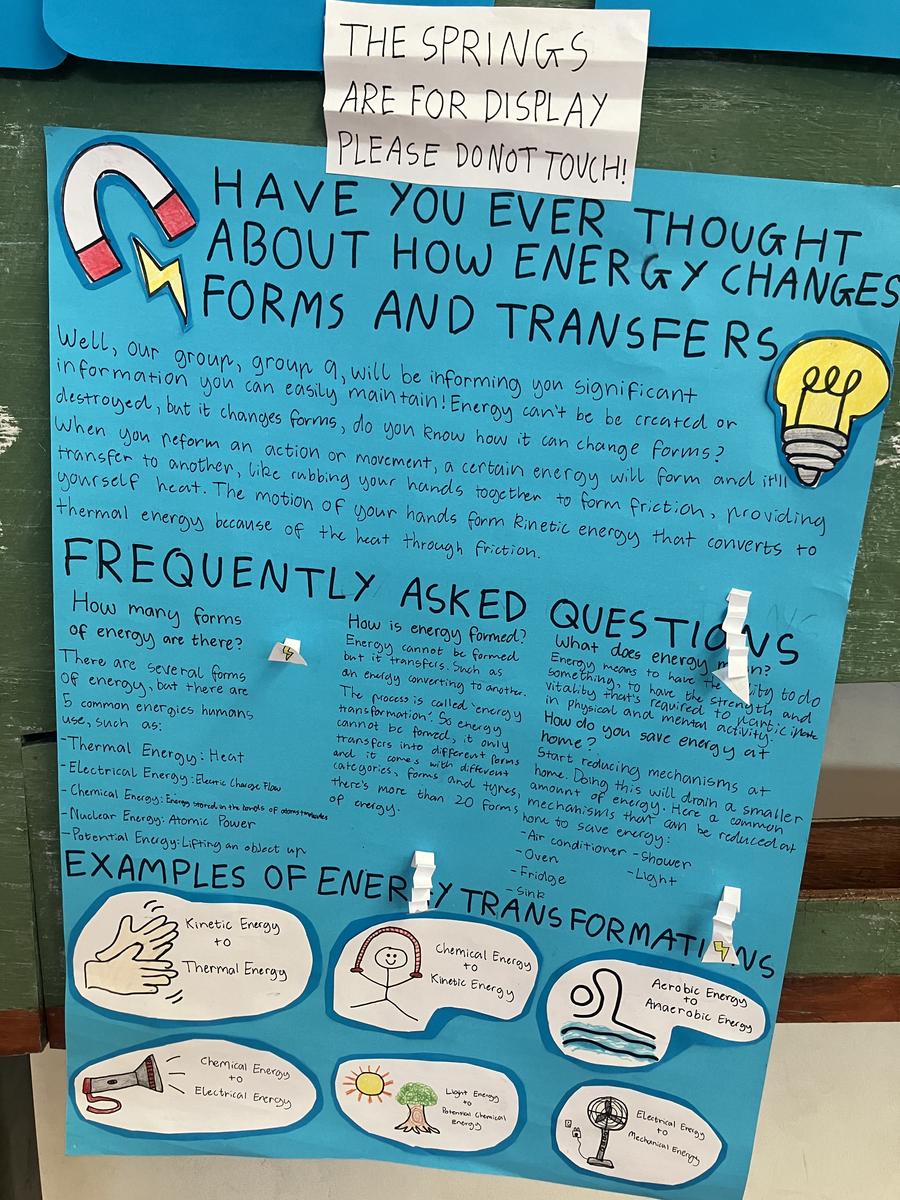 THE SPRINGS
ARE FOR DISPLAY
PLEASE DO NOT TOUCH!
HAVE YOU EVER THOUGHT
ABOUT HOW ENERGY CHANGES
FORMS AND TRANSFERS
Well, our group, group 9, will be informing you significant
information you can easily maintain! Energy can't be be created or
destroyed, but it changes forms, do you know how it can change forms?
When you reform an action or movement, a certain energy will form and it'll
transfer to another, like rubbing your hands together to form friction, providing
yourself heat. The motion of your hands form kinetic energy that converts to
thermal energy because of the heat through friction.
FREQUENTLY ASKED QUESTIONS
How many forms
of energy are there?
There are several forms
of energy, but there are
5 common energies humans
use, such as:
-Thermal Energy: Heat
-Electrical Energy: Electric Charge Flow
-Chemical Energy: Energy stored in the bonds of atoms
-Nuclear Energy: Atomic Power
-Potential Energy: Lifting an object up
How is energy formed?
Energy cannot be formed
but it transfers. Such as
an energy converting to another.
The process is called 'energy
transformation'. So energy
cannot be formed, it only
transfers into different forms
and it comes with different
categories, forms and types,
there's more than 20 forms
of energy.
What does energy mean?
Energy means to have the ability to do
something, to have the strength and
vitality that's required to
in physical and mental activity.
How do you save energy at
home?
Start reducing mechanisms at
home. Doing this will drain a smaller
amount of energy. Here a common
mechanisms that can be reduced at
home to save energy:
-Air conditioner -Shower
-Oven -Light
-Fridge
-Sink
EXAMPLES OF ENERGY TRANSFORMATIONS
Kinetic Energy
to
Thermal Energy
Chemical Energy
to
Kinetic Energy
Aerobic Energy
to
Anaerobic Energy
Chemical Energy
to
Electrical Energy
Light Energy
to
Potential Chemical
Energy
Electrical Energy
to
Mechanical Energy